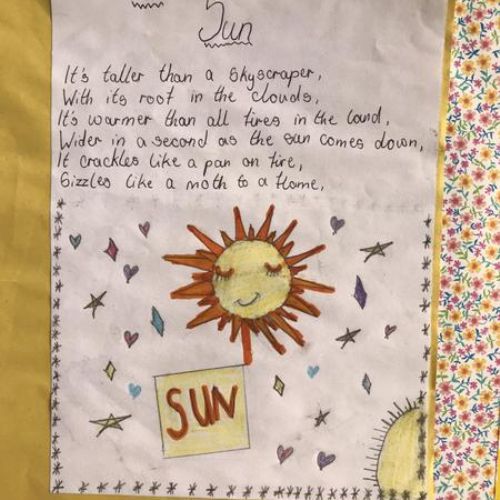 Sun
It's taller than a skyscraper,
With its roof in the clouds,
It's warmer than all fires in the land,
Wider in a second as the sun comes down,
It crackles like a pan on fire,
Sizzles like a moth to a flame,
SUN